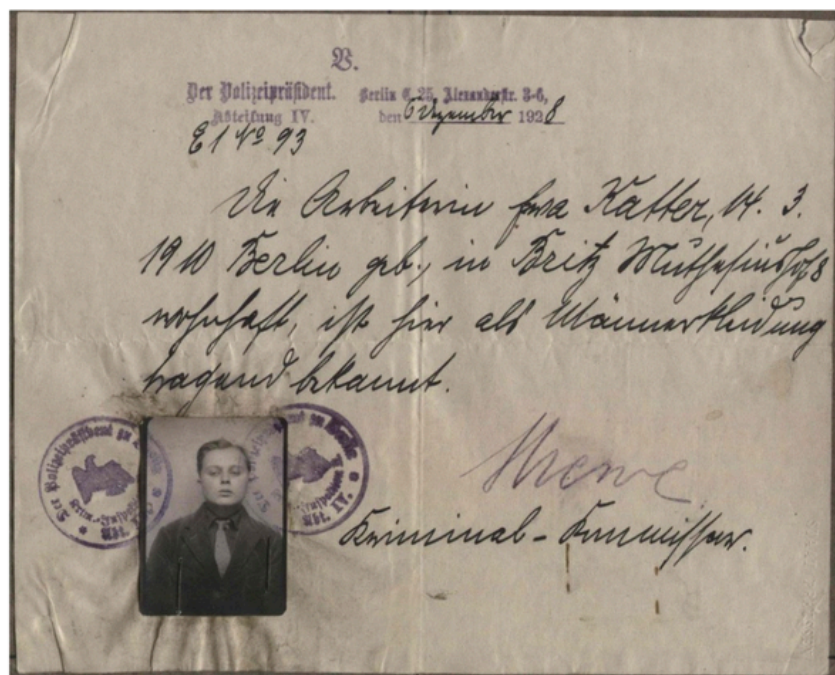 V.
Der Polizeipräsident. Berlin C. 25, Alexanderstr. 3-6,
Abteilung IV. den 6 Dezember 1928
E 1 № 93
Die Arbeiterin Eva Katter, 14. 3.
1910 Berlin geb., in Britz Muthesiushof 8
wohnhaft, ist hier als Männerkleidung
tragend bekannt.
Kriminal-Kommissar.
Der Polizeipräsident zu
Abt. IV.